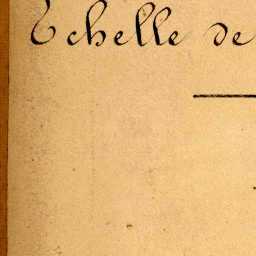 Echelle de